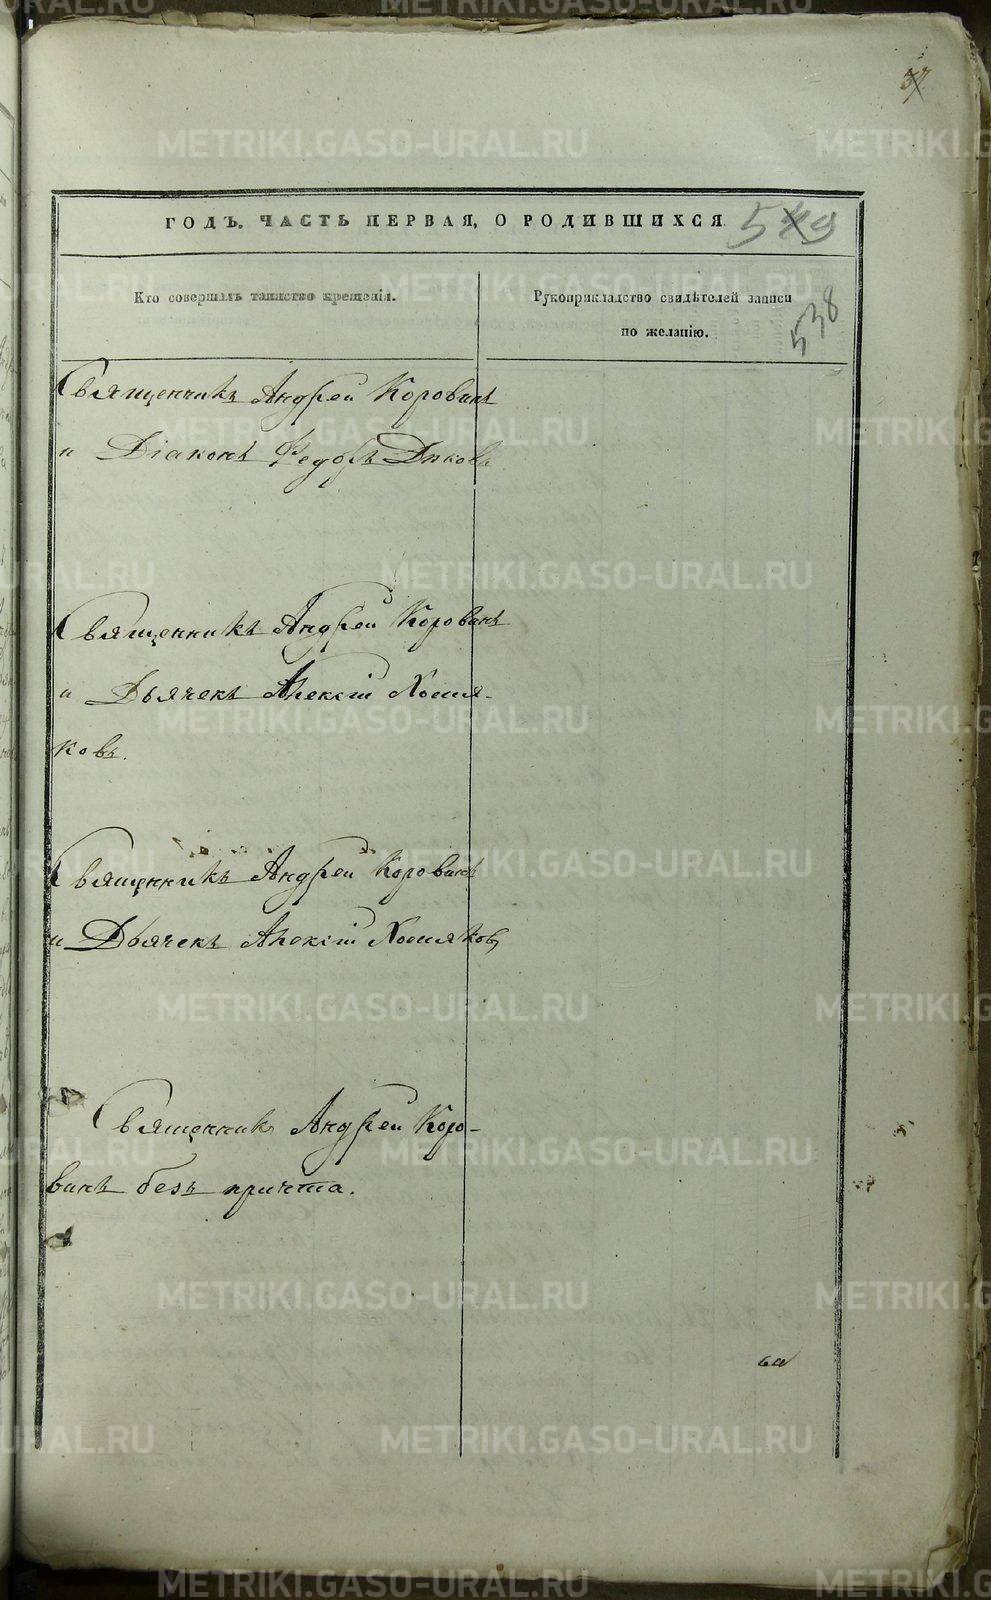 37
ГОДЪ. ЧАСТЬ ПЕРВАЯ, О РОДИВШИХСЯ
538
Кто совершалъ таинство крещенія.
Рукоприкладство свидѣтелей записи
по желанію.
Священникъ Андрей Коровинъ
и Діаконъ Федоръ Диковъ
Священникъ Андрей Коровинъ
и Дьячекъ Алексій Хомя-
ковъ.
Священникъ Андрей Коровинъ
и Дьячекъ Алексій Хомяков
Священникъ Андрей Коро-
винъ безъ причта.
METRIKI.GASO-URAL.RU